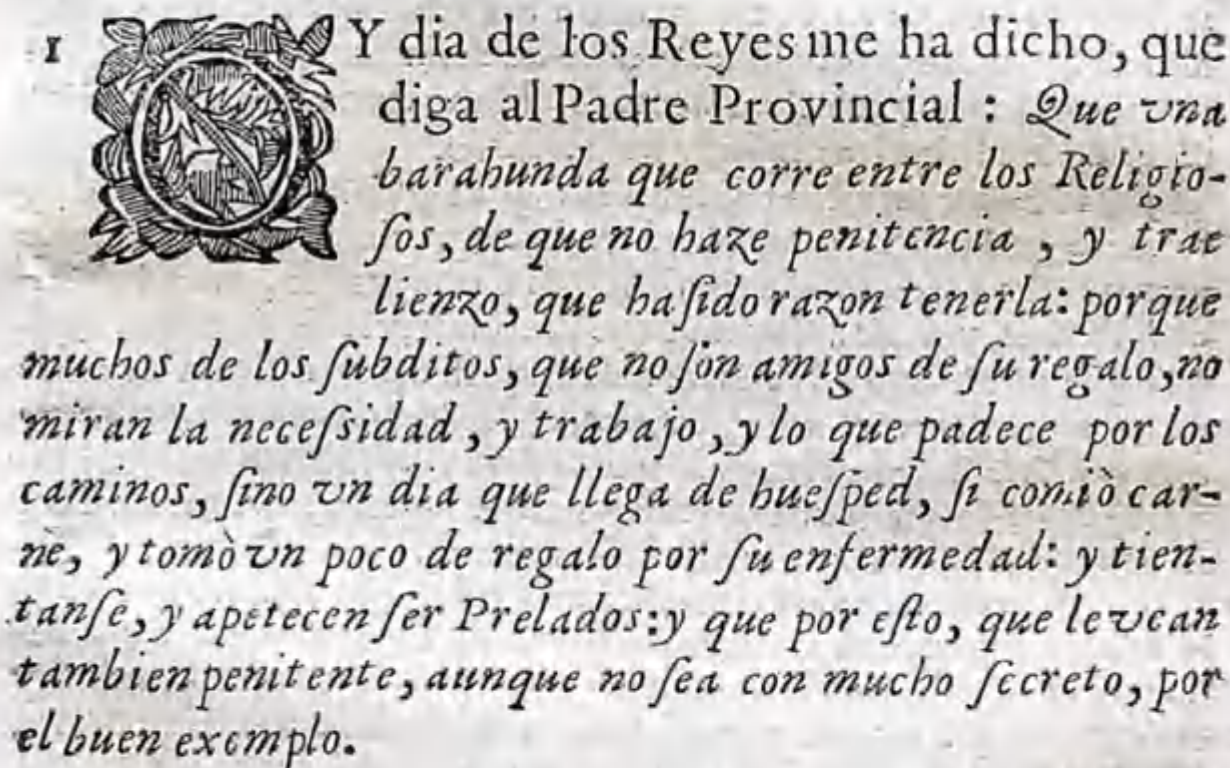 1 OY dia de los Reyes me ha dicho, que
diga al Padre Provincial : Que vna
barahunda que corre entre los Religio-
ſos, de que no haze penitencia , y trae
lienzo, que ha ſido razon tenerla: porque
muchos de los ſubditos, que no ſon amigos de ſu regalo, no
miran la neceſsidad , y trabajo , y lo que padece por los
caminos, ſino vn dia que llega de hueſped, ſi comiò car-
ne, y tomò vn poco de regalo por ſu enfermedad: y tien-
tanſe, y apetecen ſer Prelados: y que por eſto, que le vean
tambien penitente, aunque no ſea con mucho ſecreto, por
el buen exemplo.